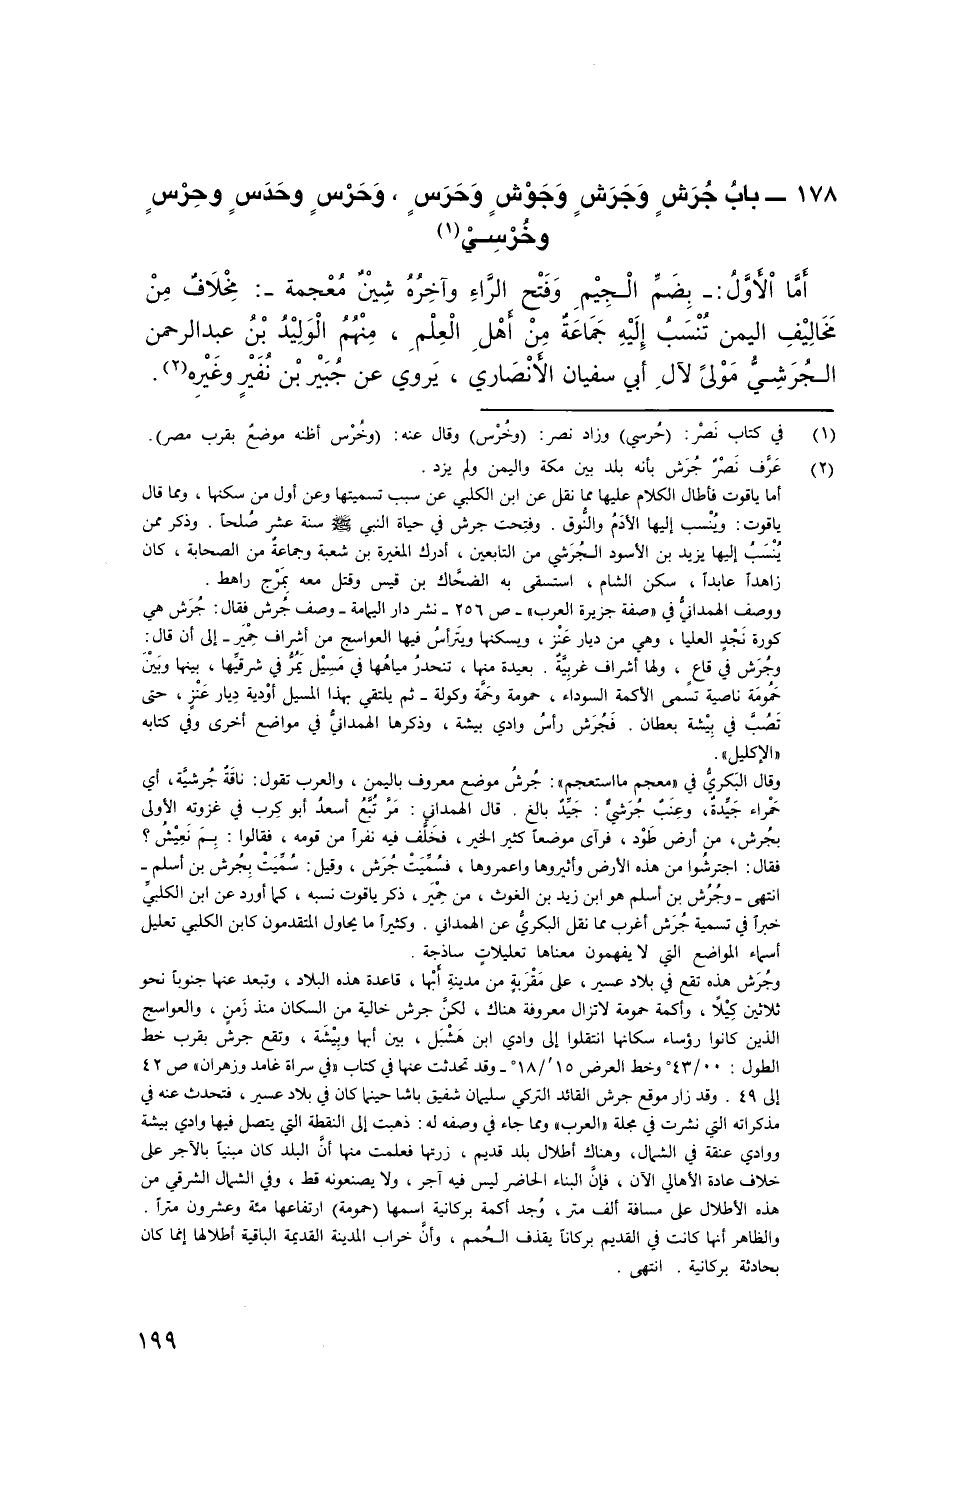 ١٧٨ ــ بابُ جُرَشٍ وَجَرَشٍ وَجَوْشٍ وَحَرَسٍ ، وَحَرْسٍ وحَدَسٍ وحِرْسٍ
وخُرْسِيْ(١)
أَمَّا اْلأَوَّلُ :ـ بِضَمِّ الْجِيْمِ وَفَتْحِ الرَّاءِ وآخِرُهُ شِيْنٌ مُعْجمة ـ: مِخْلَافٌ مِنْ
مَخَالِيْفِ اليمن تُنْسَبُ إِلَيْهِ جَمَاعَةٌ مِنْ أَهْلِ الْعِلْمِ ، مِنْهُمُ الْوَلِيْدُ بْنُ عبدالرحمن
الْجُرَشِيُّ مَوْلىً لآلِ أبي سفيان الأَنْصَاري ، يَروي عن جُبَيْرْ بْنِ نُفَيْرٍ وغَيْرِه(٢) .
(١) في كتاب نَصْرْ : (خُرسي) وزاد نصر : (وخُرْس) وقال عنه : (وخُرْس أظنه موضعٌ بقرب مصر) .
(٢) عَرَّف نَصْرٌ جُرَش بأنه بلد بين مكة واليمن ولم يزد .
أما ياقوت فأطال الكلام عليها مما نقل عن ابن الكلبي عن سبب تسميتها وعن أول من سكنها ، ومما قال
ياقوت : ويُنْسب إليها الأدَمُ والنُّوق . وفتحت جرش في حياة النبي ﷺ سنة عشر صُلحاً . وذكر ممن
يُنْسَبُ إليها يزيد بن الأسود الجُرَشي من التابعين ، أدرك المغيرة بن شعبة وجماعةً من الصحابة ، كان
زاهداً عابداً ، سكن الشام ، استسقى به الضحَّاك بن قيس وقتل معه بمَرْج راهط .
ووصف الهمدانيُّ في «صفة جزيرة العرب» ـ ص ٢٥٦ ـ نشر دار اليمامة ـ وصف جُرش فقال : جُرَش هي
كورة نَجْدٍ العليا ، وهي من ديار عَنْز ، ويسكنها ويتَرأسُ فيها العواسج من أشراف حِمْيَر ـ إلى أن قال :
وجُرَش في قاعٍ ، ولها أشراف غربيَّةٌ . بعيدة منها ، تنحدرُ مياهُها في مَسِيْل يَمُرُّ في شرقيِّها ، بينها وبَيْنَ
حَمُومَة ناصية تسمى الأكمة السوداء ، حمومة وحمَّة وكولة ـ ثم يلتقي بهذا المسيل أوْدية دِيار عَنْزٍ ، حتى
تَصُبَّ في بِيْشة بعطان . فَجُرَش رأسُ وادي بيشة ، وذكرها الهمدانيُّ في مواضع أخرى وفي كتابه
«الإكليل» .
وقال البَكريُّ في «معجم مااستعجم» : جُرشُ موضع معروف باليمن ، والعرب تقول : ناقَةٌ جُرشيَّة ، أي
حَمْراء جَيِّدةٌ ، وعِنَبٌ جُرَشيٌّ : جَيِّدٌ بالغ . قال الهمداني : مَرَّ تُبَّعُ أسعدُ أبو كرب في غزوته الأولى
بجُرش ، من أرض طَوْد ، فرآى موضعاً كثير الخير ، فخَلَّف فيه نفراً من قومه ، فقالوا : بِمَ نَعِيْشُ ؟
فقال : اجترِشُوا من هذه الأرض وأثيروها واعمروها ، فسُمِّيَتْ جُرَش ، وقيل : سُمِّيَتْ بِجُرش بن أسلم ـ
انتهى ـ وجُرُش بن أسلم هو ابن زيد بن الغوث ، من حِمْيَر ، ذكر ياقوت نسبه ، كما أورد عن ابن الكلبيِّ
خبراً في تسمية جُرَش أغرب مما نقل البكريُّ عن الهمداني . وكثيراً ما يحاول المتقدمون كابن الكلبي تعليل
أسماء المواضع التي لا يفهمون معناها تعليلاتٍ ساذجة .
وجُرَش هذه تقع في بلاد عسير ، على مَقْرَبةٍ من مدينة أَبْها ، قاعدة هذه البلاد ، وتبعد عنها جنوباً نحو
ثلاثين كِيْلًا ، وأكمة حمومة لاتزال معروفة هناك ، لكنَّ جرش خالية من السكان منذ زَمنٍ ، والعواسج
الذين كانوا رؤساء سكانها انتقلوا إلى وادي ابن هَشْبَل ، بين أبها وبِيْشَة ، وتقع جرشُ بقرب خط
الطول : ٤٣/٠٠° وخط العرض ١٨/١٥°َ ـ وقد تحدثت عنها في كتاب «في سراة غامد وزهران» ص ٤٢
إلى ٤٩ . وقد زار موقع جرش القائد التركي سليمان شفيق باشا حينما كان في بلاد عسير ، فتحدث عنه في
مذكراته التي نشرت في مجلة «العرب» ومما جاء في وصفه له : ذهبت إلى النقطة التي يتصل فيها وادي بيشة
ووادي عنقة في الشمال ، وهناك أطلال بلد قديم ، زرتها فعلمت منها أنَّ البلد كان مبنياً بالآجر على
خلاف عادة الأهالي الآن ، فإنَّ البناء الحاضر ليس فيه آجر ، ولا يصنعونه قط ، وفي الشمال الشرقي من
هذه الأطلال على مسافة ألف متر ، وُجد أكمة بركانية اسمها (حمومة) ارتفاعها مئة وعشرون متراً .
والظاهر أنها كانت في القديم بركاناً يقذف الحُمم ، وأنَّ خراب المدينة القديمة الباقية أطلالها إنما كان
بحادثة بركانية . انتهى .
١٩٩